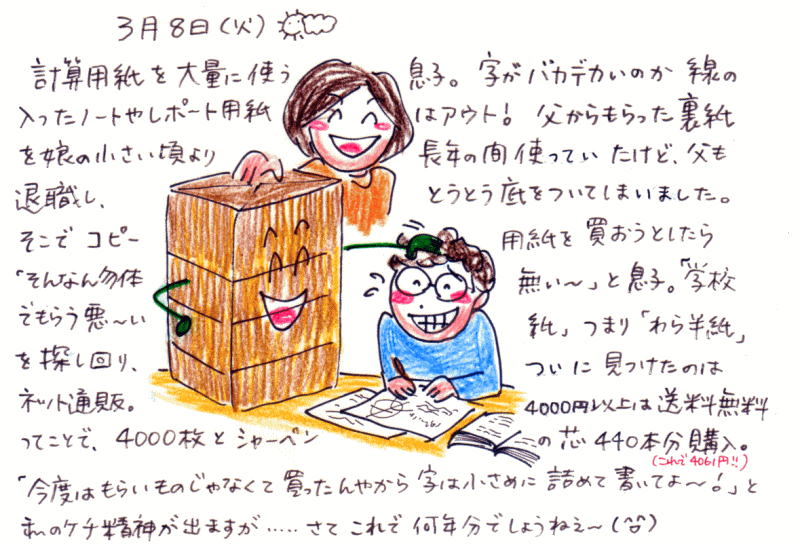 3月8日(火)
計算用紙を大量に使う 息子。字がバカデカいのか 線の
入ったノートやレポート用紙 はアウト! 父からもらった裏紙
を娘の小さい頃より 長年の間使っていたけど、父も
退職し、 とうとう底をついてしまいました。
そこで コピー 用紙を買おうとしたら
「そんなん勿体 無い〜」と息子。「学校
でもらう悪〜い 紙」つまり「わら半紙」
を探し回り、 ついに見つけたのは
ネット通販。 4000円以上は送料無料
ってことで、4000枚とシャーペン の芯440本分購入。
(これで4061円!!)
「今度はもらいものじゃなくて買ったんやから字は小さめに詰めて書いてよ〜!」と
私のケチ精神が出ますが‥‥‥さてこれで何年分でしょうねえ〜(笑)